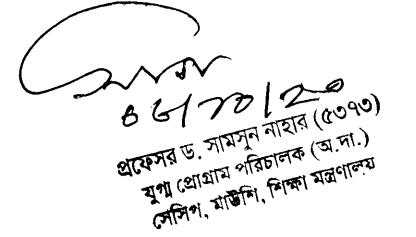 ০৮/১০/২০
প্রফেসর ড. সামসুন নাহার (৫৩৭৩)
যুগ্ম প্রোগ্রাম পরিচালক (অ.দা.)
সেসিপ, মাউশি, শিক্ষা মন্ত্রণালয়